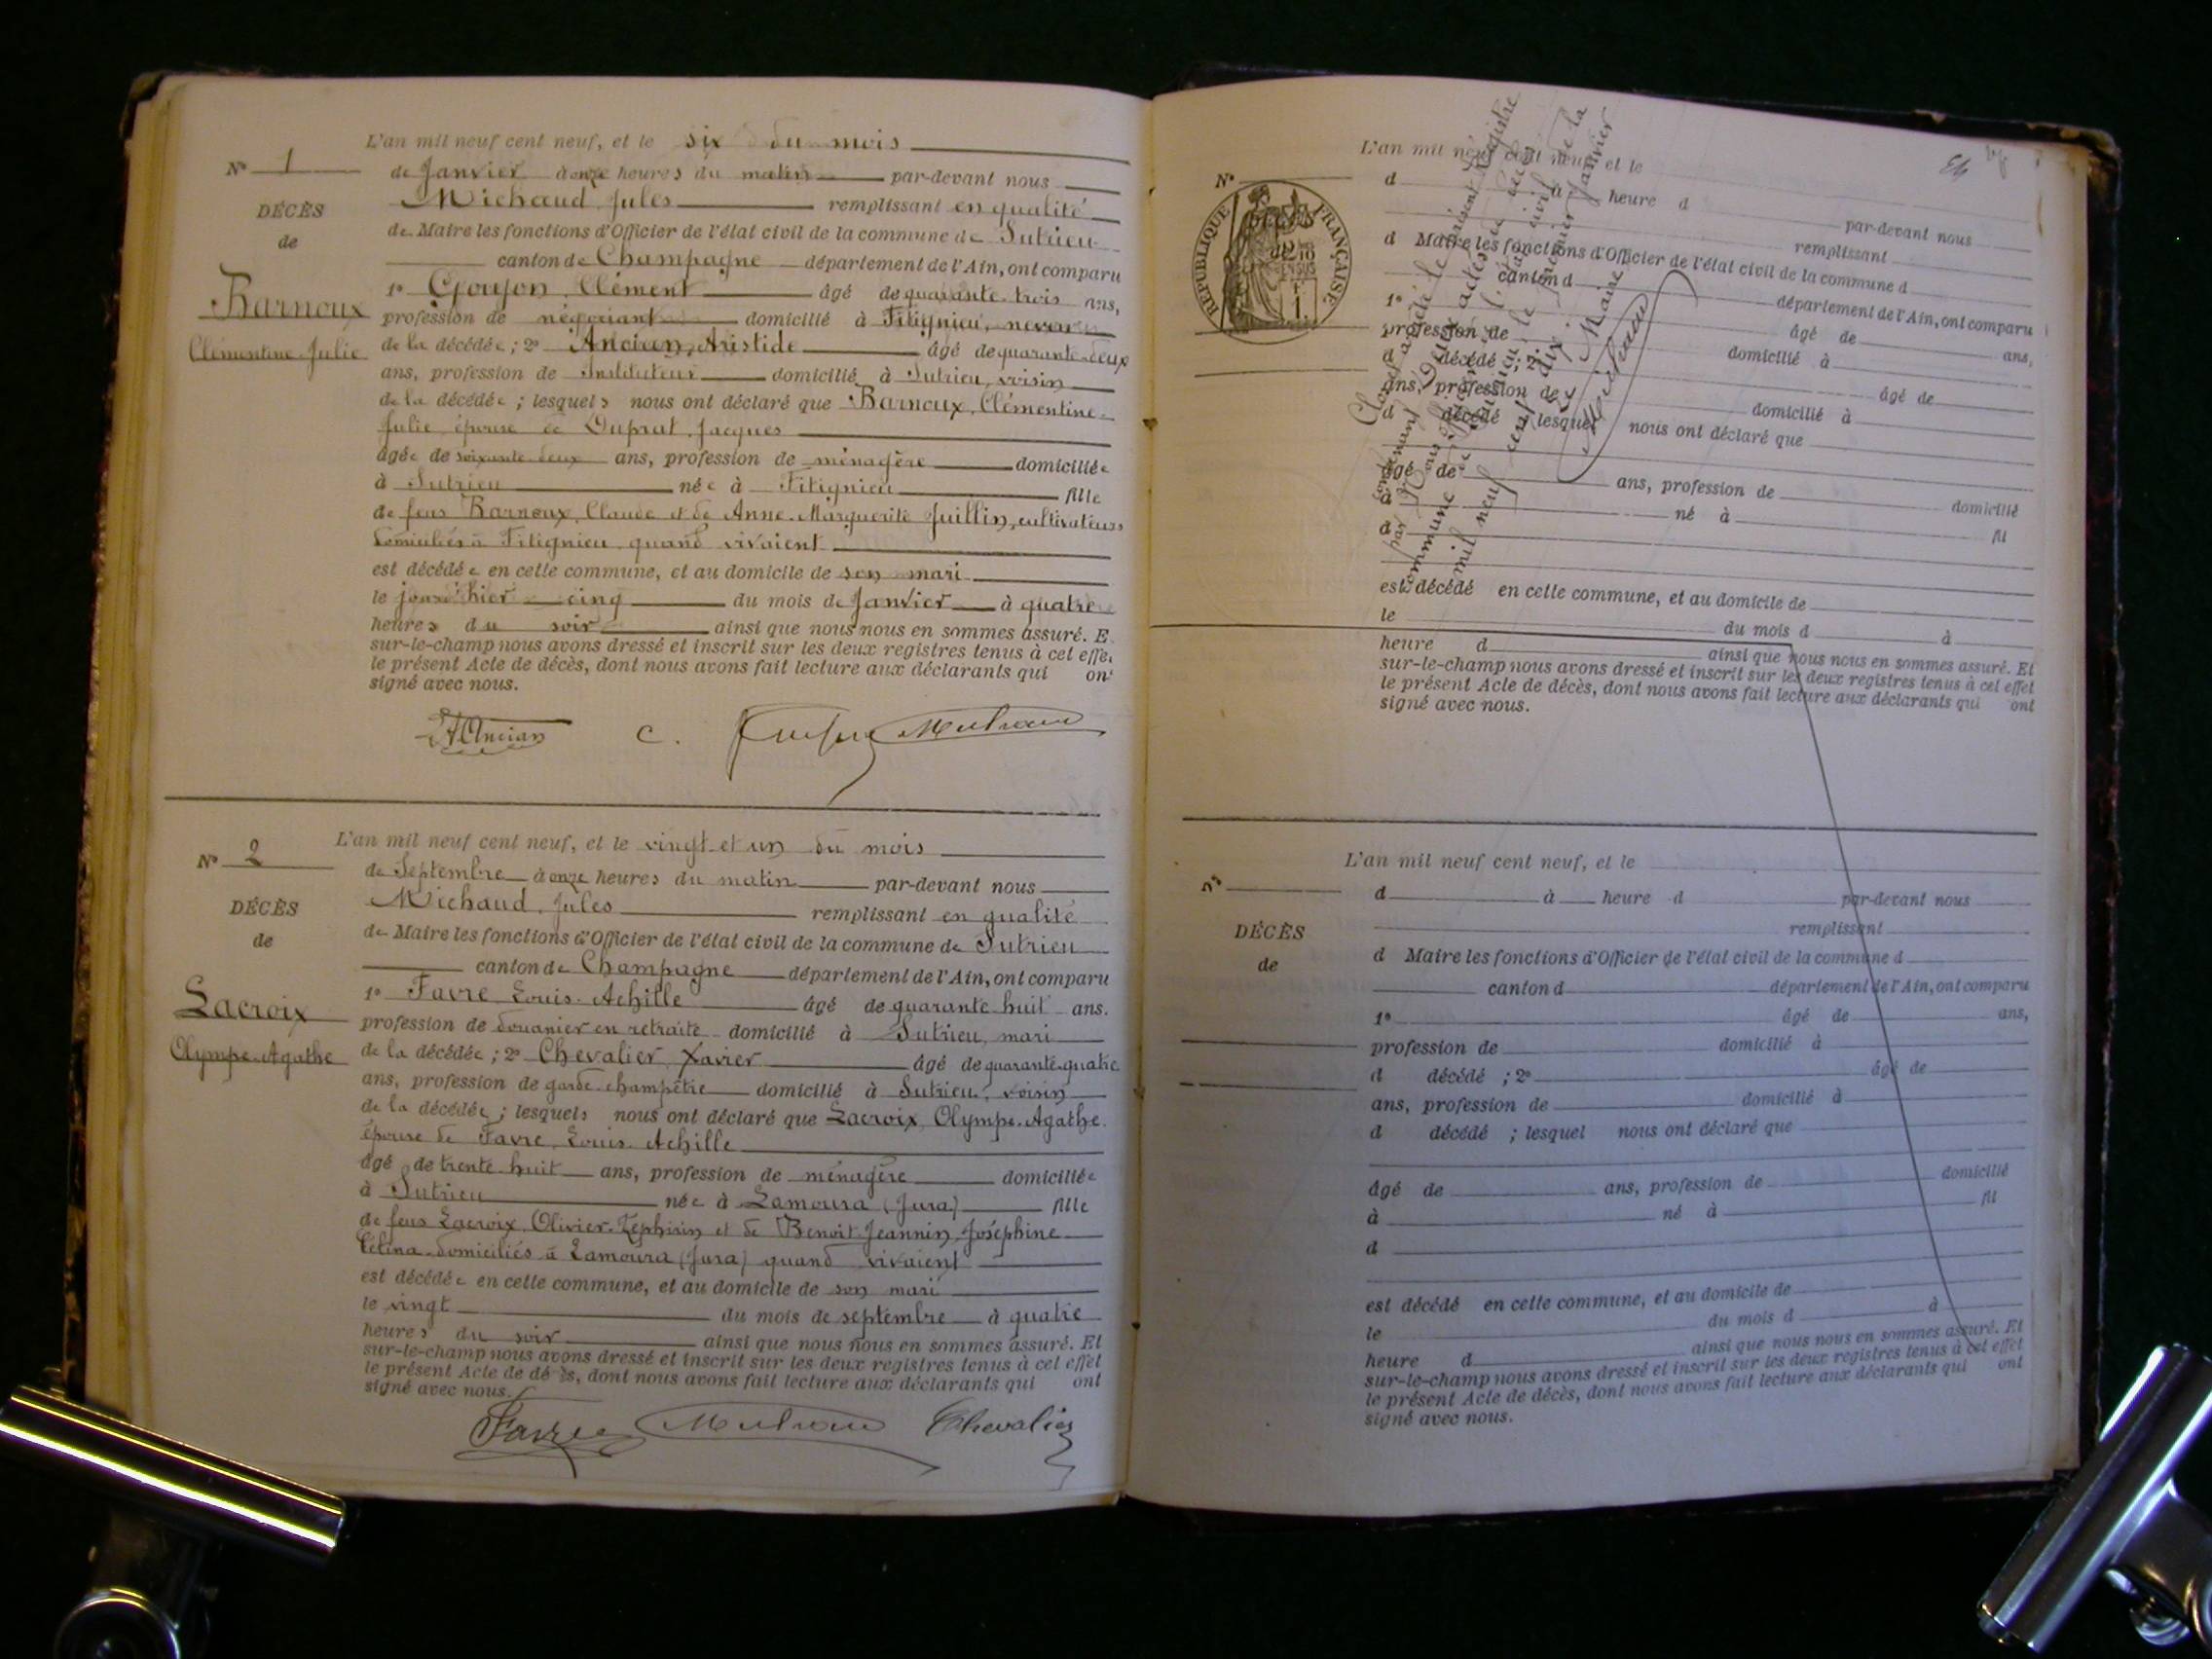 L'an mil neuf cent neuf, et le six du mois
N° 1
de Janvier à onze heures du matin par-devant nous
Michaud Jules remplissant en qualité
DÉCÈS
de Maire les fonctions d'Officier de l'état civil de la commune de Sutrieu
de
canton de Champagne département de l'Ain, ont comparu
Barnoux
1° Goujon, Clément âgé de quarante-trois ans,
profession de négociant domicilié à Fitignieu, neveu
Clémentine-Julie
de la décédée ; 2° Ancian, Aristide âgé de quarante-deux
ans, profession de Instituteur domicilié à Sutrieu, voisin
de la décédée ; lesquels nous ont déclaré que Barnoux, Clémentine-
Julie, épouse de Duprat, Jacques
âgée de soixante-deux ans, profession de ménagère domiciliée
à Sutrieu née à Fitignieu fille
de feus Barnoux, Claude et de Anne-Marguerite Juillin, cultivateurs
domiciliés à Fitignieu quand vivaient
est décédée en cette commune, et au domicile de son mari
le jour d'hier cinq du mois de Janvier à quatre
heures du soir ainsi que nous nous en sommes assuré. E
sur-le-champ nous avons dressé et inscrit sur les deux registres tenus à cet effe
le présent Acte de décès, dont nous avons fait lecture aux déclarants qui ont
signé avec nous.
A Ancian C. Michaud
L'an mil neuf cent neuf, et le vingt-et-un du mois
N° 2
de Septembre à onze heures du matin par-devant nous
Michaud, Jules remplissant en qualité
DÉCÈS
de Maire les fonctions d'Officier de l'état civil de la commune de Sutrieu
de
canton de Champagne département de l'Ain, ont comparu
Lacroix
1° Favre Louis-Achille âgé de quarante-huit ans.
profession de douanier en retraite domicilié à Sutrieu, mari
Olympe-Agathe
de la décédée ; 2° Chevalier, Xavier âgé de quarante-quatre
ans, profession de garde-champêtre domicilié à Sutrieu, voisin
de la décédée ; lesquels nous ont déclaré que Lacroix, Olympe-Agathe
épouse de Favre, Louis-Achille
âgé de trente-huit ans, profession de ménagère domiciliée
à Sutrieu née à Lamoura (Jura) fille
de feus Lacroix, Olivier-Zéphirin et de Benoit-Jeannin, Joséphine
Célina domiciliés à Lamoura (Jura) quand vivaient
est décédée en cette commune, et au domicile de son mari
le vingt du mois de septembre à quatre
heures du soir ainsi que nous nous en sommes assuré. Et
sur-le-champ nous avons dressé et inscrit sur les deux registres tenus à cet effet
le présent Acte de décès, dont nous avons fait lecture aux déclarants qui ont
signé avec nous.
Favre Michaud Chevalier
L'an mil neuf cent neuf, et le
N°
d à heure d
par-devant nous
remplissant
RÉPUBLIQUE FRANÇAISE
d Maire les fonctions d'Officier de l'état civil de la commune d
canton d département de l'Ain, ont comparu
1° âgé de ans,
profession de domicilié à
d décédé ; 2° âgé de
ans, profession de domicilié à
d décédé lesquel nous ont déclaré que
âgé de ans, profession de domicilié
à né à fil
d
est décédé en cette commune, et au domicile de
le du mois d à
heure d ainsi que nous nous en sommes assuré. Et
sur-le-champ nous avons dressé et inscrit sur les deux registres tenus à cet effet
le présent Acte de décès, dont nous avons fait lecture aux déclarants qui ont
signé avec nous.
Clos et arrêté le présent Registre
contenant Deux actes de décès
par Nous, officier de l'état civil de la
commune de Sutrieu le premier Janvier
mil neuf cent dix
Le Maire
Michaud
L'an mil neuf cent neuf, et le
N°
d à heure d par-devant nous
DÉCÈS
remplissant
de
d Maire les fonctions d'Officier de l'état civil de la commune d
canton d département de l'Ain, ont comparu
1° âgé de ans,
profession de domicilié à
d décédé ; 2° âgé de
ans, profession de domicilié à
d décédé ; lesquel nous ont déclaré que
âgé de ans, profession de domicilié
à né à fil
d
est décédé en cette commune, et au domicile de
le du mois d à
heure d ainsi que nous nous en sommes assuré. Et
sur-le-champ nous avons dressé et inscrit sur les deux registres tenus à cet effet
le présent Acte de décès, dont nous avons fait lecture aux déclarants qui ont
signé avec nous.